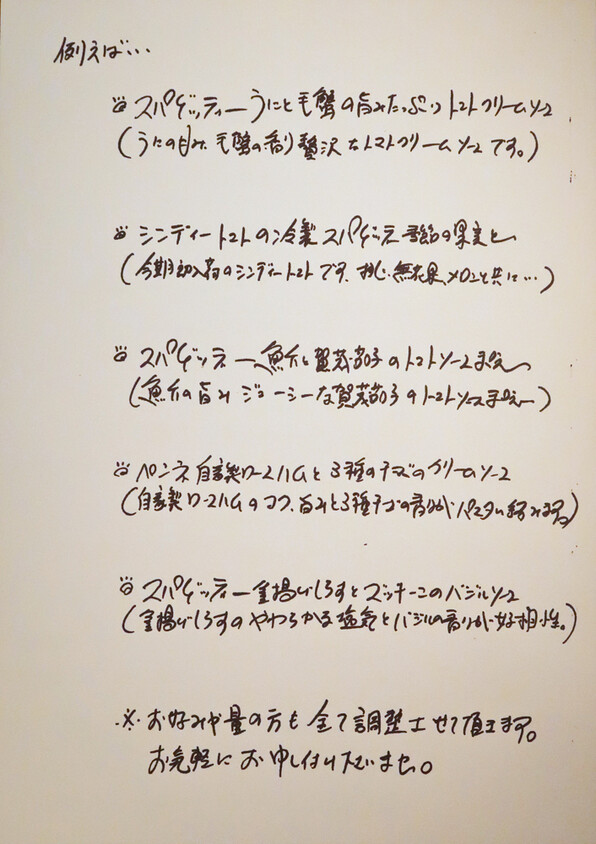 例えば…
スパゲッティーうにと毛蟹の旨みたっぷりトマトクリームソース
(うにの甘み、毛蟹の香り贅沢なトマトクリームソースです。)
シンディートマトの冷製スパゲッティ季節の果実と
(今期初入荷のシンディートマトです、桃、無花果、メロンと共に…)
スパゲッティー 魚介と賀茂茄子のトマトソースまぜ
(魚介の旨み ジューシーな賀茂茄子のトマトソース)
ペンネ自家製ロースハムと3種のチーズのクリームソース
(自家製ロースハムのコク、旨みと3種チーズの香りがパスタに絡みます。)
スパゲッティー釜揚げしらすとズッキーニのバジルソース
(釜揚げしらすのやわらかな塩気とバジルの香りが好相性。)
※お好みや量の方も全て調整させて頂きます。
お気軽にお申し付け下さいませ。